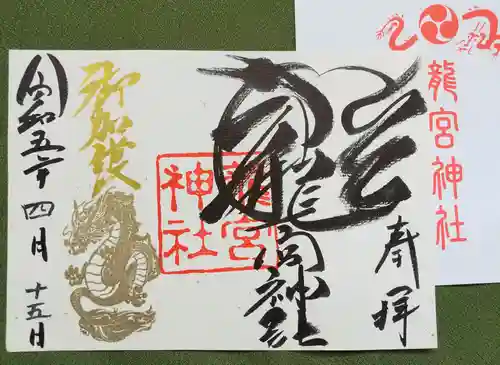 奉拝
龍宮神社
龍宮
神社
御加護
令和五年四月十五日
龍宮神社